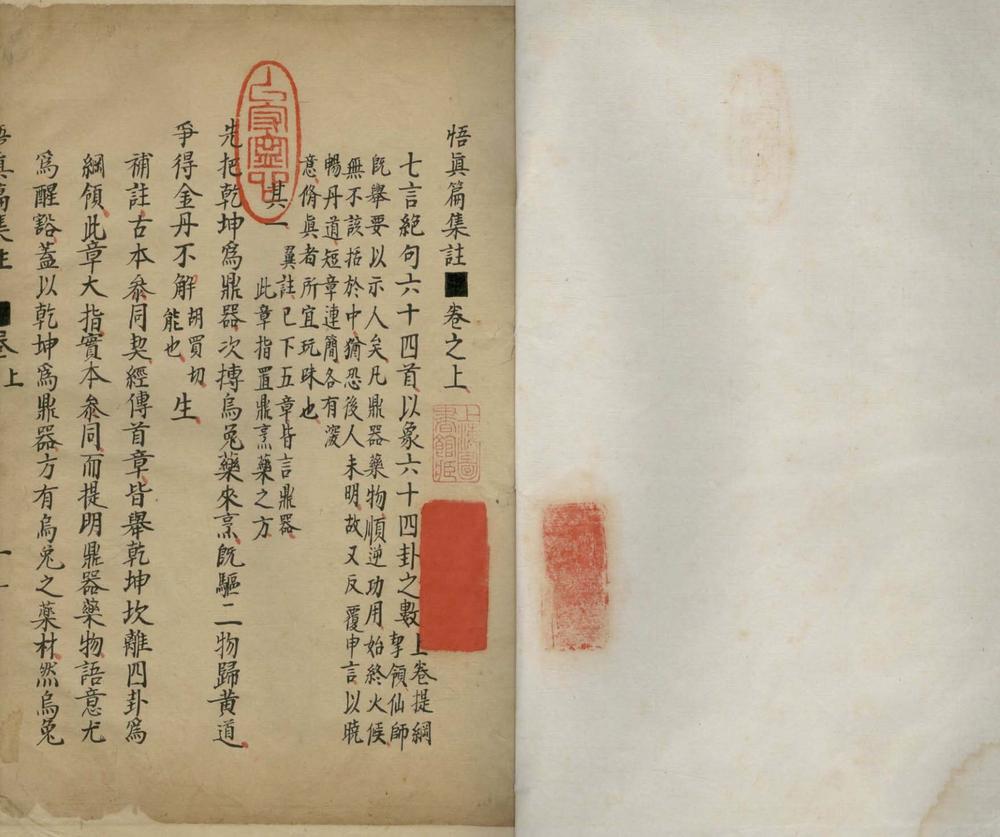 悟眞篇集註 卷之上
七言絶句六十四首以象六十四卦之數上卷提綱
挈領仙師
旣舉要以示人矣凡鼎器藥物順逆功用始終火候
無不該括於中猶恐後人未明故又反覆申言以曉
暢丹道短章連簡各有深
意脩眞者所宜玩味也
其一
翼註已下五章皆言鼎器
此章指置鼎烹藥之方
先把乾坤爲鼎器次摶烏兔藥來烹旣驅二物歸黄道
爭得金丹不解胡買切
能也生
補註古本叅同契經傳首章皆舉乾坤坎離四卦爲
綱領此章大指實本叅同而提明鼎器藥物語意尤
爲醒豁蓋以乾坤爲鼎器方有烏兔之藥材然烏兔
悟眞篇集註 卷上 一
上海圖書館藏